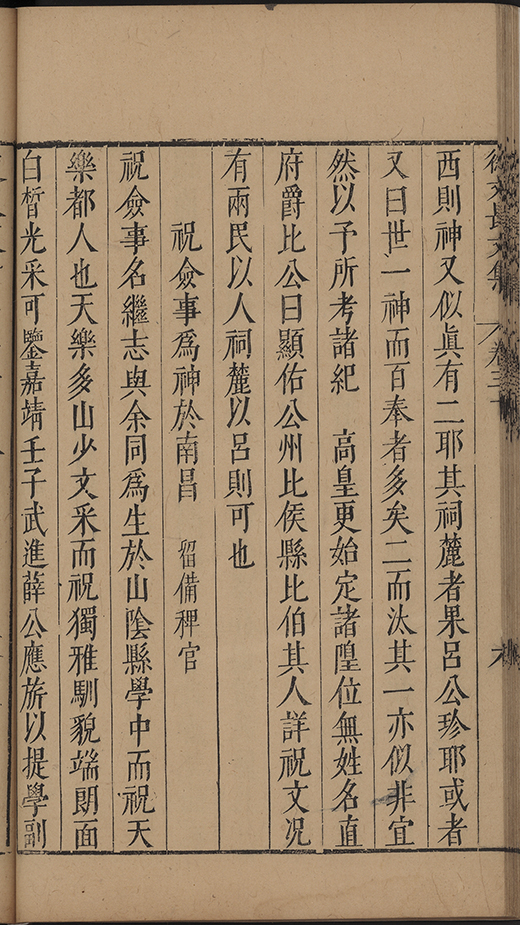 徐文長文集 卷三十 六
西則神又似眞有二耶其祠麓者果呂公珍耶或者
又曰世一神而百奉者多矣二而汰其一亦似非宜
然以予所考諸紀 高皇更始定諸隍位無姓名直
府爵比公曰顯佑公州比侯縣比伯其人詳祝文况
有兩民以人祠麓以呂則可也
祝僉事爲神於南昌 畱備稗官
祝僉事名繼志與余同爲生於山陰縣學中而祝天
樂都人也天樂多山少文采而祝獨雅馴貌端朗面
白晳光采可鑒嘉靖壬子武進薛公應旂以提學副